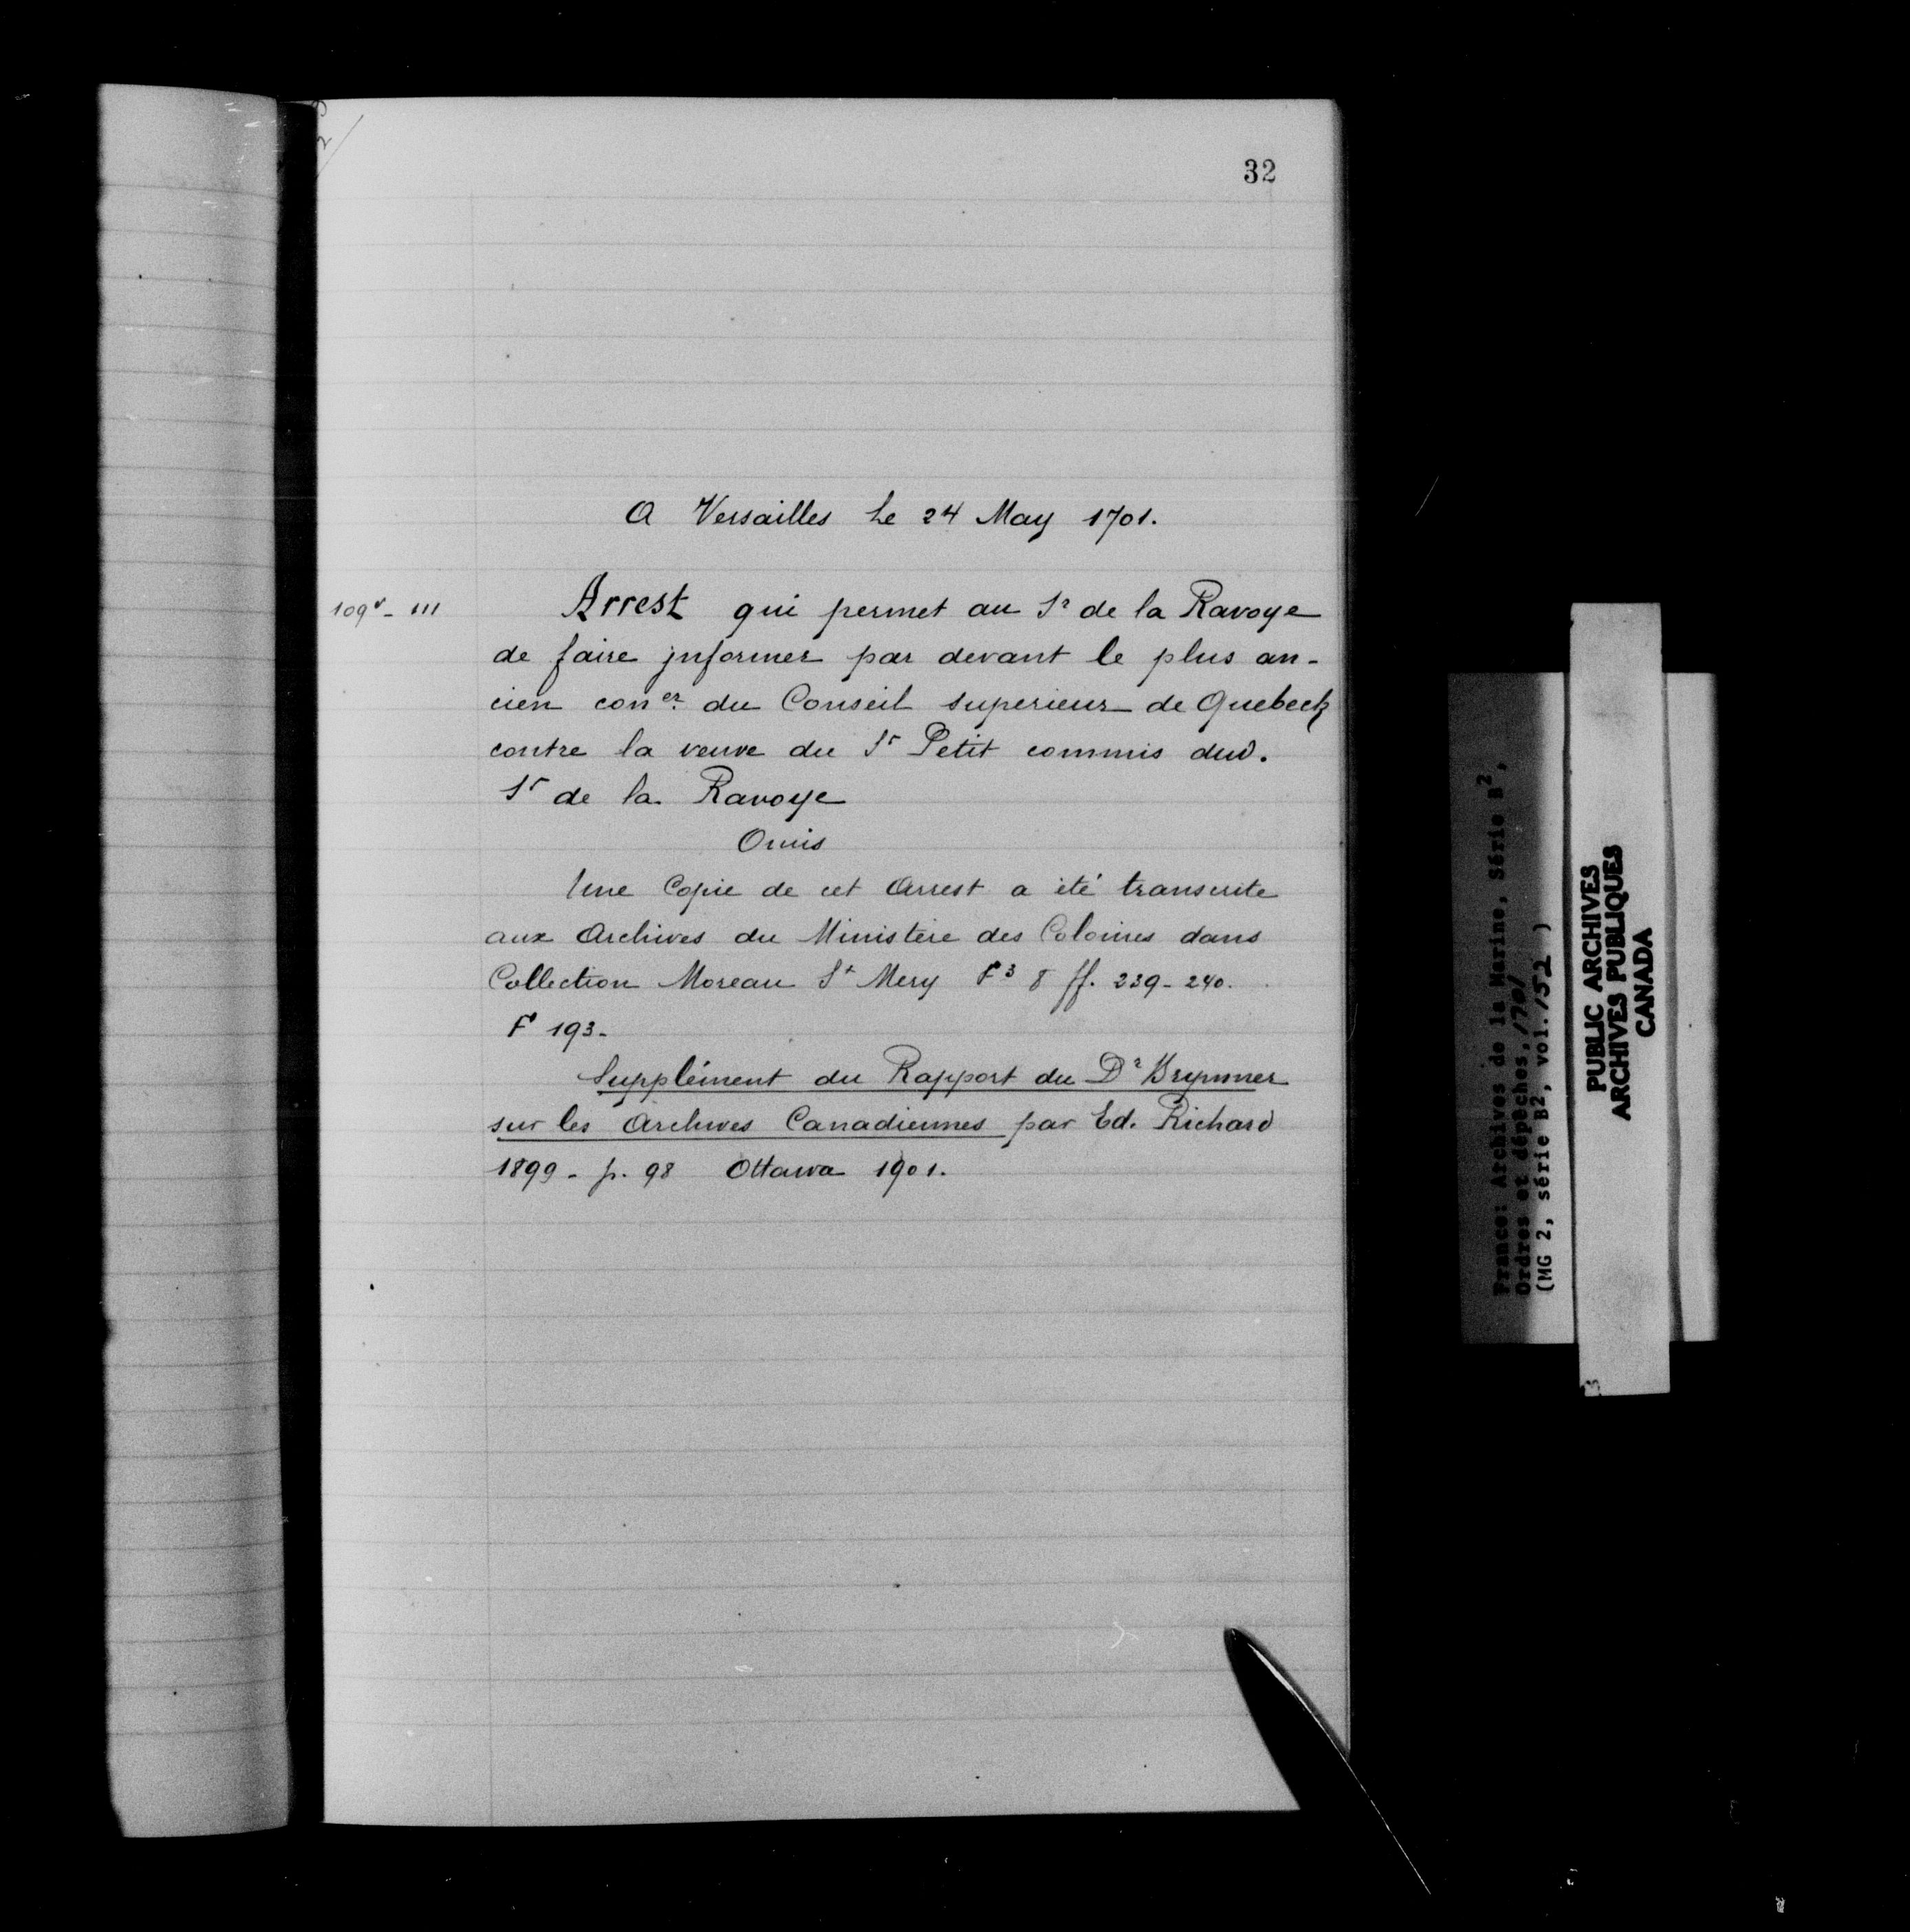 32
A Versailles Le 24 May 1701.
109v - 111
Arrest qui permet au Sr de la Ravoye
de faire jnformer par devant le plus an-
cien coner du Conseil superieur de Quebeck
contre la veuve du Sr Petit commis dud.
Sr de la Ravoye
Omis
Une Copie de cet Arrest a été transcrite
aux Archives du Ministère des Colonies dans
Collection Moreau St Mery F3 8 ff. 239-240.
F 193.
Supplément du Rapport du Dr Brymner
sur les Archives Canadiennes par Ed. Richard
1899 - p. 98 Ottawa 1901.
France: Archives de la Marine, Série B2,
Ordres et dépêches, 1701
(MG 2, série B2, vol. 152 )
PUBLIC ARCHIVES
ARCHIVES PUBLIQUES
CANADA